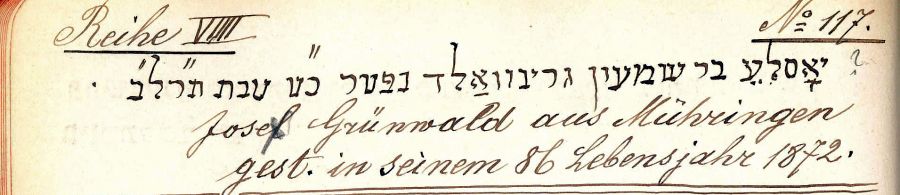 Reihe VIIII No 117.
יאָסלעֶ בר שמעון גרינוואַלד נפטר כ"ט טבת תרל"ב . ?
Josef Grünwald aus Mühringen
gest. in seinem 86 Lebensjahr 1872.